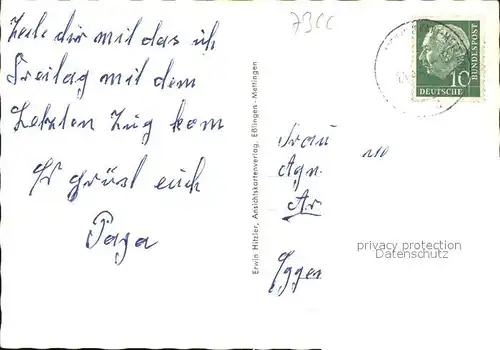 73CC
Zeile dir mit das ich
Freitag mit dem
Letzten Zug kom
Es grüst euch
Papa
Erwin Hitzler, Ansichtskartenverlag, Eßlingen-Mettingen
10
DEUTSCHE
BUNDESPOST
Frau
Agn
Ar
Eggen
privacy protection
Datenschutz